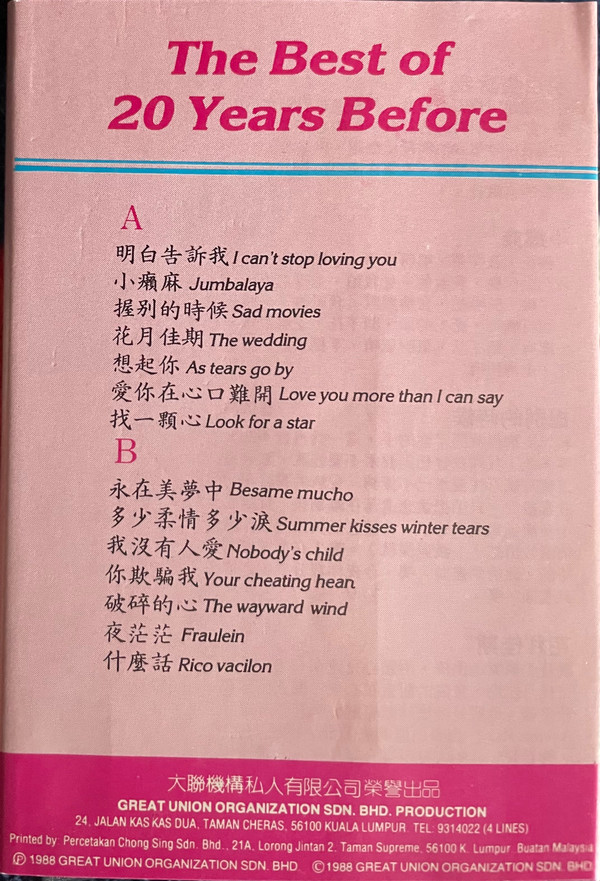 The Best of
20 Years Before
A
明白告訴我 I can't stop loving you
小癩麻 Jumbalaya
握別的時候 Sad movies
花月佳期 The wedding
想起你 As tears go by
愛你在心口難開 Love you more than I can say
找一顆心 Look for a star
B
永在美夢中 Besame mucho
多少柔情多少淚 Summer kisses winter tears
我沒有人愛 Nobody's child
你欺騙我 Your cheating hean
破碎的心 The wayward wind
夜茫茫 Fraulein
什麼話 Rico vacilon
大聯機構私人有限公司榮譽出品
GREAT UNION ORGANIZATION SDN. BHD. PRODUCTION
24, JALAN KAS KAS DUA, TAMAN CHERAS, 56100 KUALA LUMPUR. TEL: 9314022 (4 LINES)
Printed by: Percetakan Chong Sing Sdn. Bhd., 21A, Lorong Jintan 2, Taman Supreme, 56100 K. Lumpur. Buatan Malaysia
Ⓟ 1988 GREAT UNION ORGANIZATION SDN. BHD. © 1988 GREAT UNION ORGANIZATION SDN. BHD.